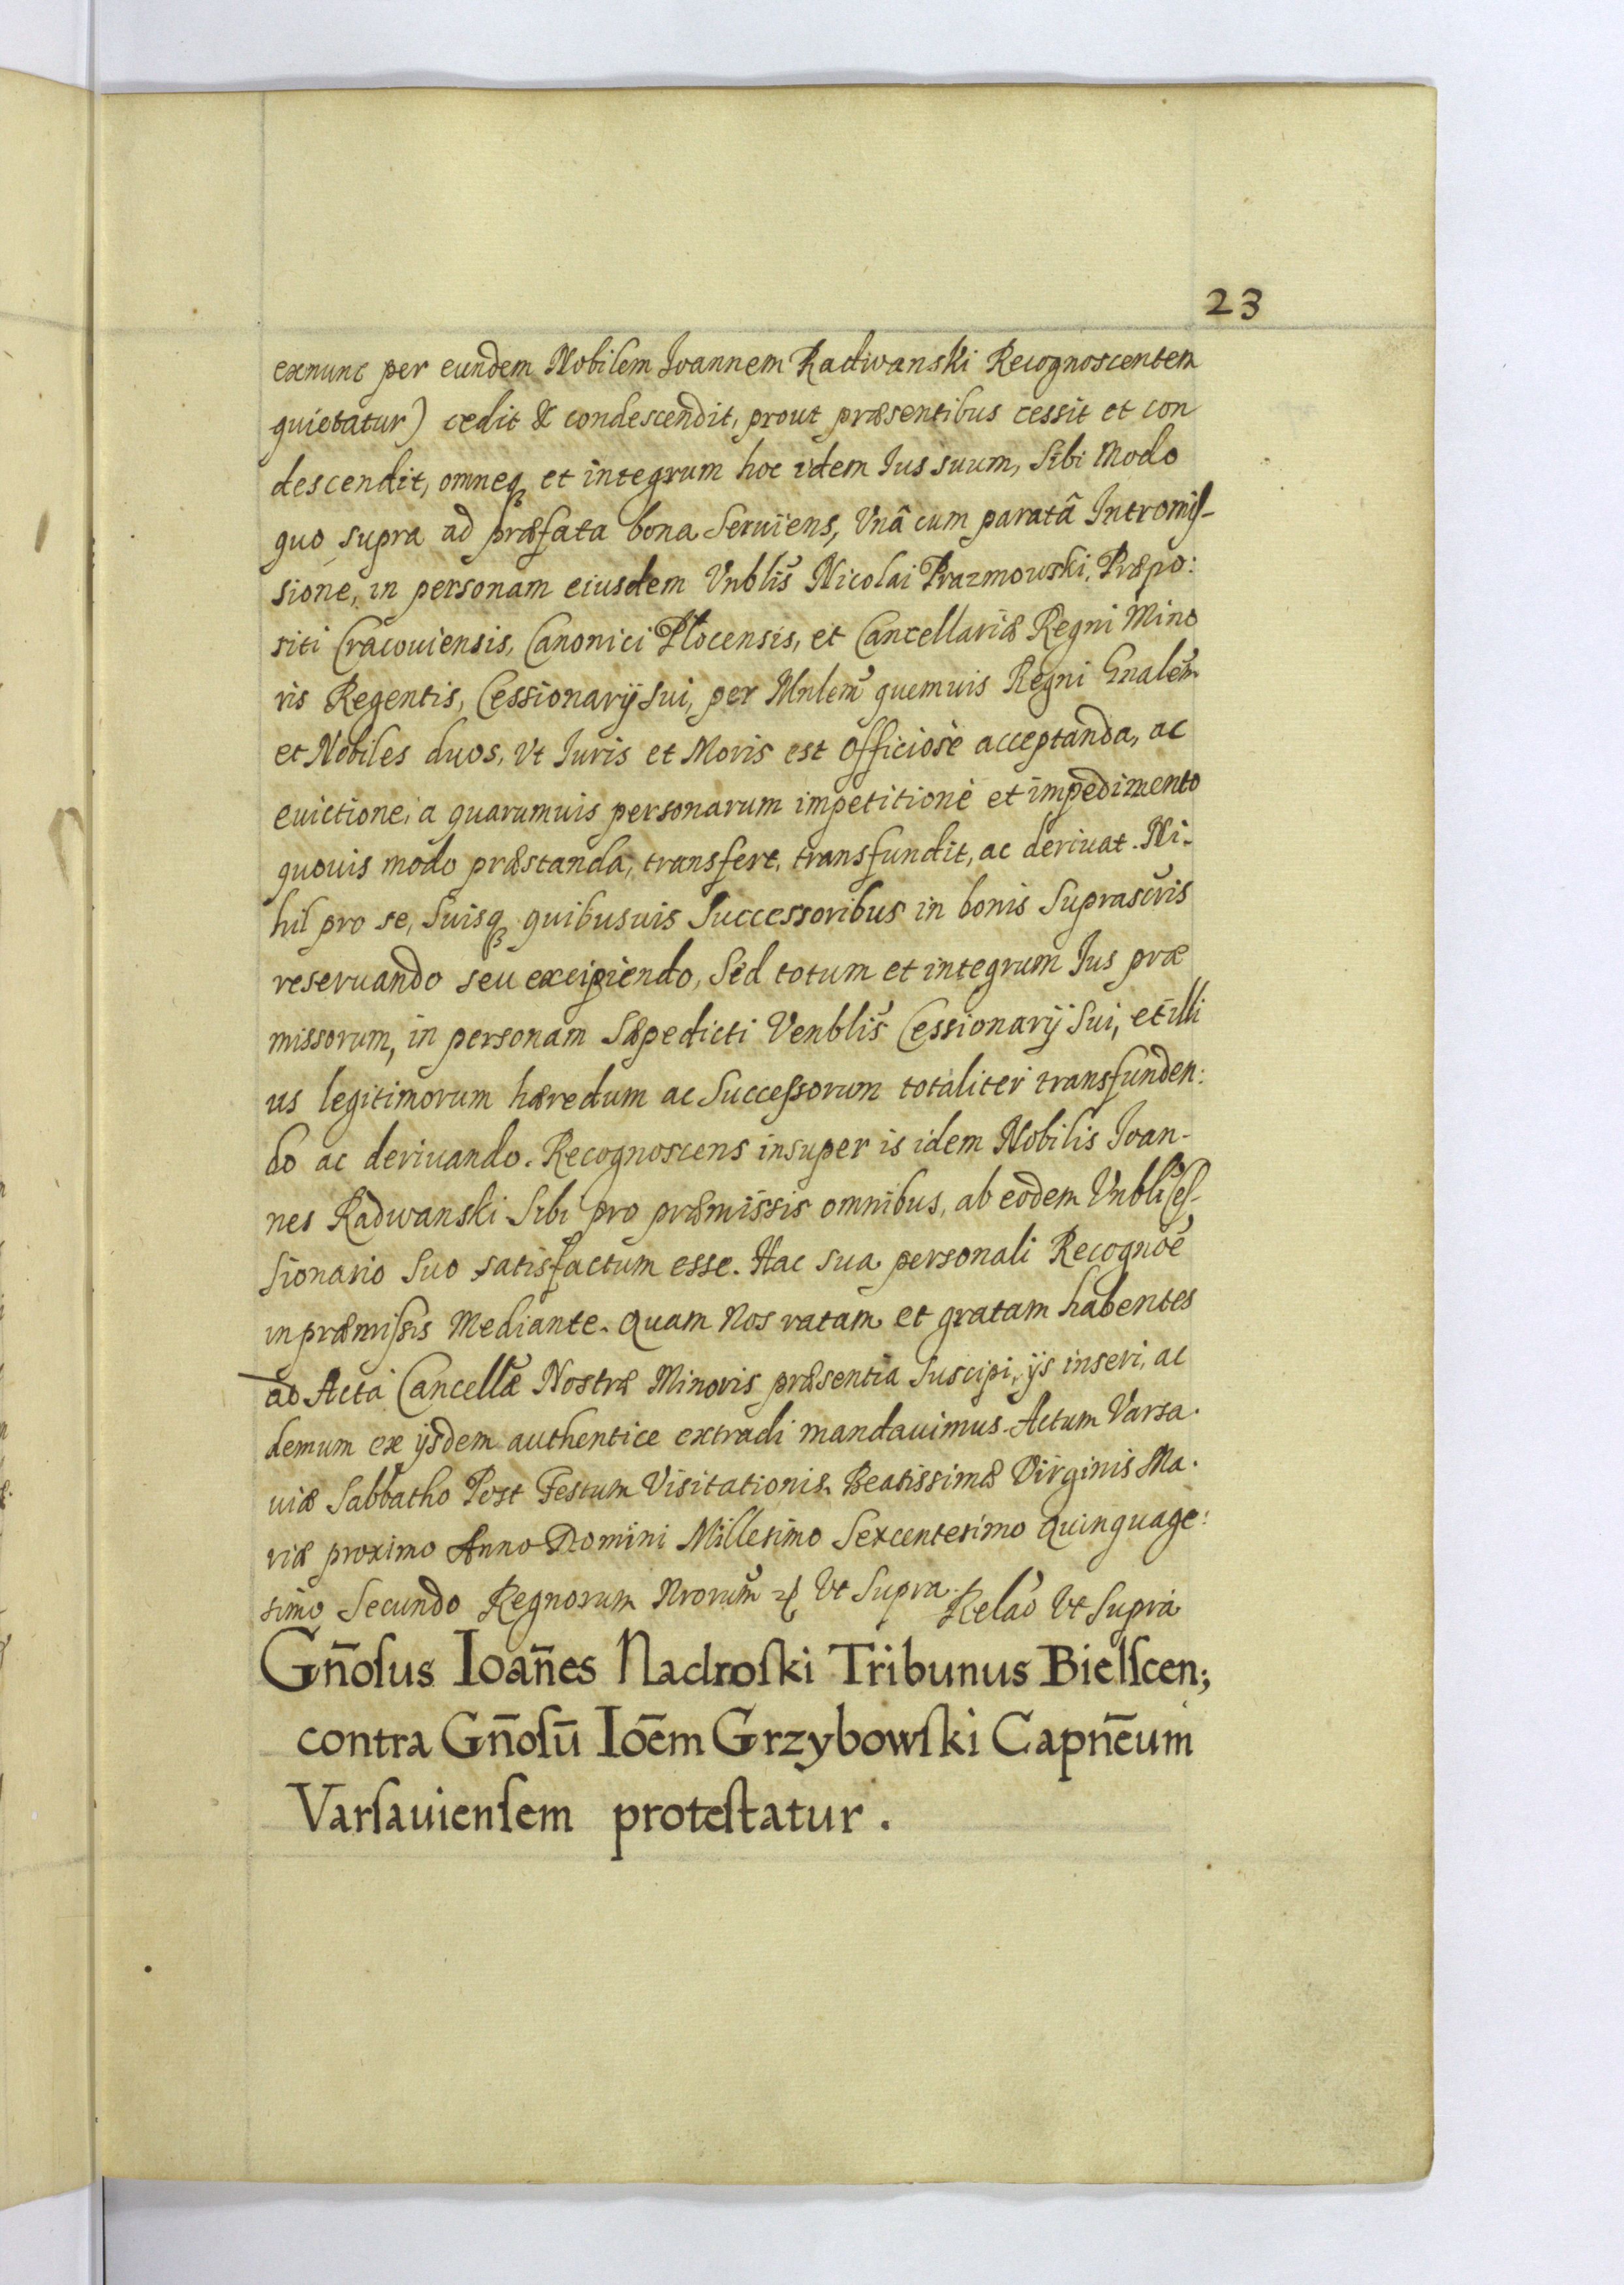 23
exnunc per eundem Nobilem Ioannem Radwanski Recognoscentem
quietatur) cedit & condescendit, prout præsentibus cessit et con
descendit, omneqȝ et integrum hoc idem Ius suum, Sibi Modo
quo supra ad præfata bona Seruiens, Vnâ cum paratâ Intromiſ-
sione, in personam eiusdem Vnblis̃ Nicolai Prazmowski, Præpo:
siti Cracouiensis, Canonici Plocensis, et Cancellariæ Regni Mino
ris Regentis, Cessionarij Sui, per Mnlem̃ quemuis Regni Gnalem̃
et Nobiles duos, Vt Iuris et Moris est officiosè acceptanda, ac
euictione, a quarumuis personarum impetitione et impedimento
quouis modo præstanda, transfert, transfundit, ac deriuat. Ni-
hil pro se, Suisqȝ quibusuis Successoribus in bonis Suprascr̃is
reseruando seu excipiendo, Sed totum et integrum Ius præ
missorum, in personam Sæpedicti Venblis̃ Cessionarij Sui, et illi
us legitimorum hæredum ac Succeſsorum totaliter transfunden:
do ac deriuando. Recognoscens insuper is idem Nobilis Ioan-
nes Radwanski Sibi pro præmissis omnibus, ab eodem Vnblĩ Ceſ-
sionario Suo satisfactum esse. Hac sua personali Recognoẽ
in præmiſsis Mediante. Quam Nos ratam et gratam habentes
ad Acta Cancellæ̃ Nostræ Minoris præsentia Suscipi, ijs inseri, ac
demum ex ijsdem authentice extradi mandauimus. Actum Varsa-
uiæ Sabbatho Post Festum Visitationis Beatissimæ Virginis Ma-
riæ proximo Anno Domini Millesimo Sexcentesimo Quinquage:
simo Secundo Regnorum Nrorum̃ Vt Supra. Relaõ Vt Supra
Gn̄oſus Ioan̄es Nadroſki Tribunus Bielſcen;
contra Gn̄oſū Ioēm Grzybowſki Capnēum
Varſauienſem proteſtatur.